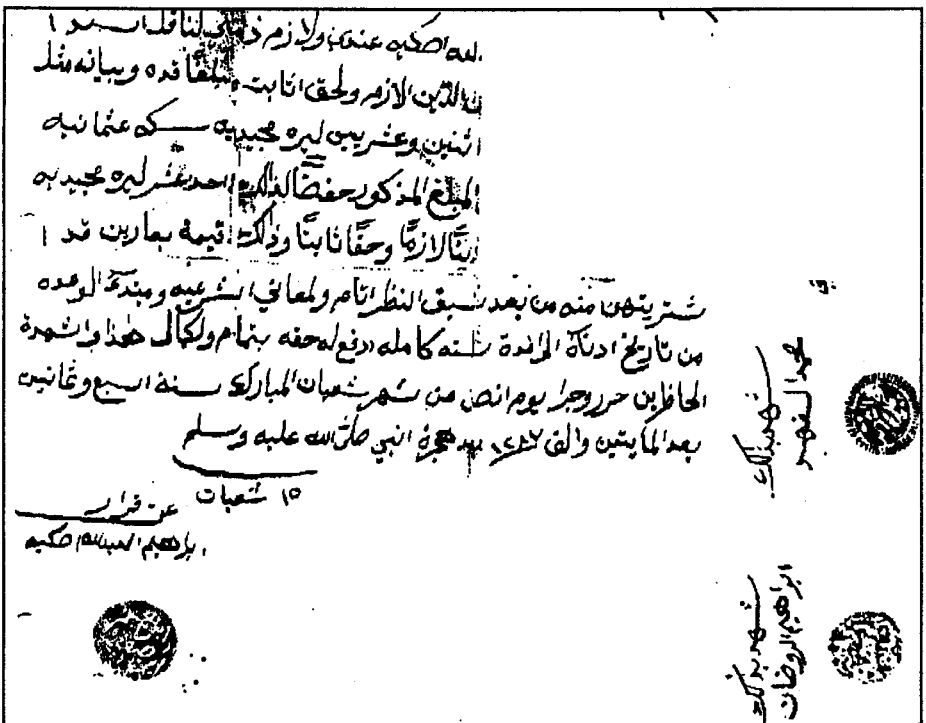 لله اصكيه عندي ولازم ذمتي لناقل السند ا
الدين الازم ولحق اثابت مبلغا قده وبيانه مثله
اثنين وعشرين ليره مجيديه سكه عثمانيه
المبلغ المذكور حفضا لذالك احد عشر ليره مجيديه
دينا لازما وحقا ثابتا وذالك اقيمة بعارين قد ا
شتريتهن منه من بعد سبق النظر اتام ولمعاني الشرعيه ومبتدئ الوعده
من تاريخ ادناه الى نوة سنه كامله ادفع له حقه بتمام ولكمال هذا واشهدة
الحاظرين حرر وجرا يوم انص من شهر شعبان المبارك سنة السبع وثمانين
بعد المايتين والف ١٢٨٧ بعد هجرة انبي صلى الله عليه وسلم
١٥ شعبان
عن قرار
ابراهيم العبدالله صكيه
شهد بذلك
حمد الفهر
شهد بذلك
ابراهيم الروضان